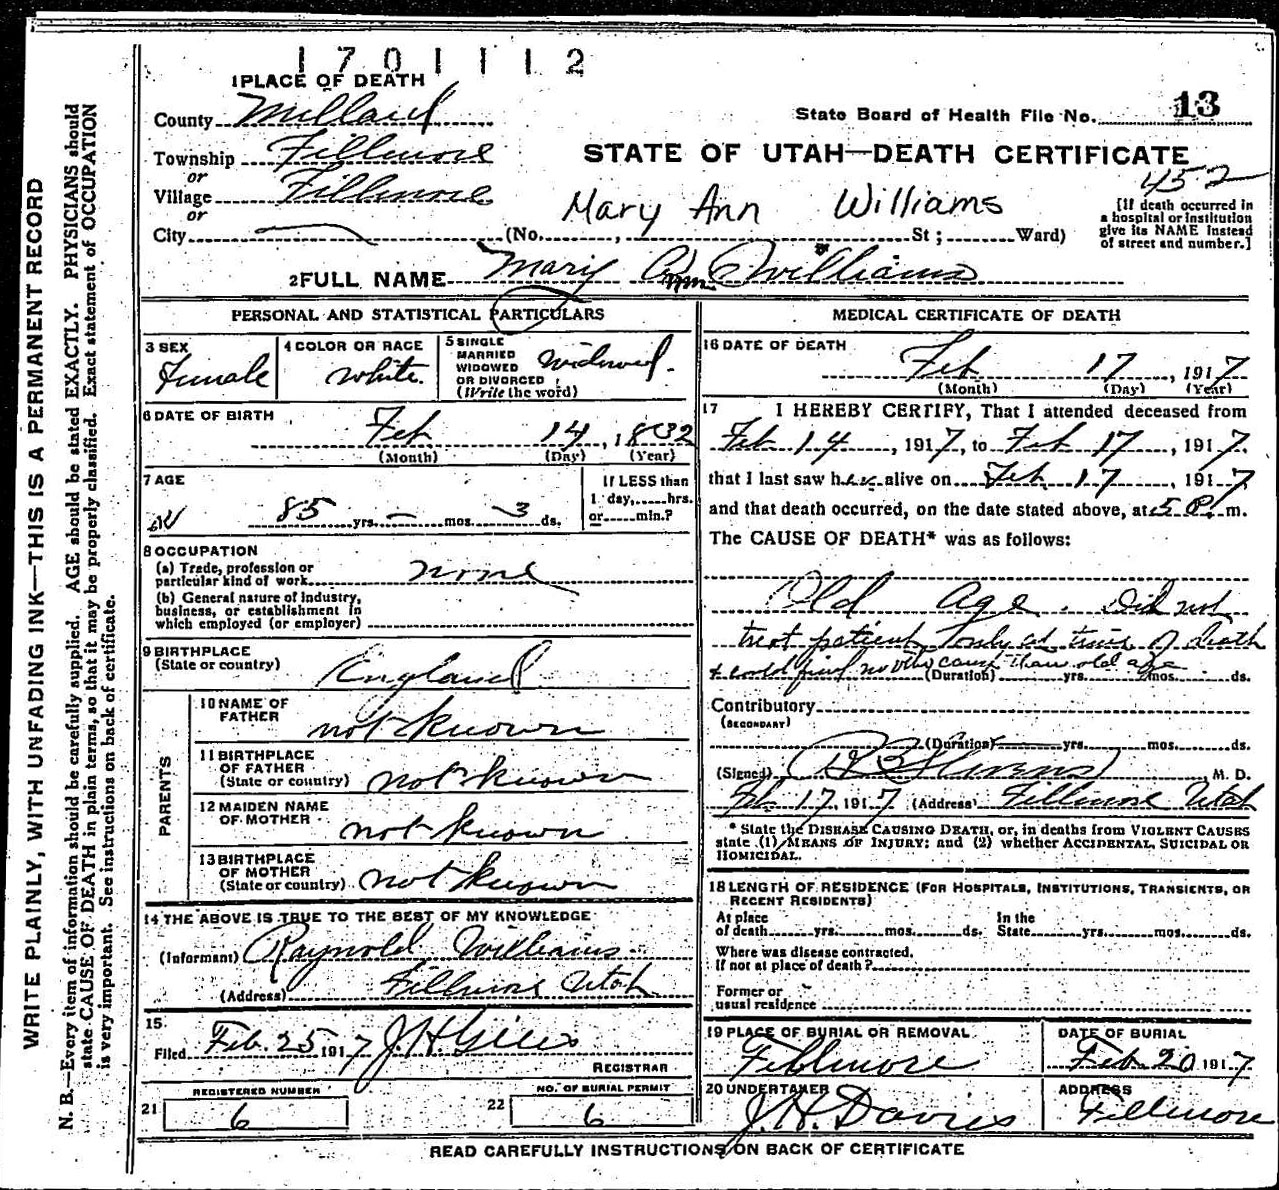 1701112
1 PLACE OF DEATH
County Millard
State Board of Health File No. 13
Township Fillmore
or
STATE OF UTAH—DEATH CERTIFICATE
452
Village Fillmore
or
Mary Ann Williams
[If death occurred in
a hospital or institution
give its NAME instead
of street and number.]
City (No. , St ; Ward)
2 FULL NAME Mary Ann Williams
PERSONAL AND STATISTICAL PARTICULARS
3 SEX
Female
4 COLOR OR RACE
White.
5 SINGLE
MARRIED
WIDOWED
OR DIVORCED
(Write the word)
Widowed.
6 DATE OF BIRTH
Feb 14, 1832
(Month) (Day) (Year)
7 AGE
85 yrs. — mos. 3 ds.
If LESS than
1 day, hrs.
or min.?
8 OCCUPATION
(a) Trade, profession or
particular kind of work none
(b) General nature of industry,
business, or establishment in
which employed (or employer)
9 BIRTHPLACE
(State or country) England
PARENTS
10 NAME OF
FATHER not known
11 BIRTHPLACE
OF FATHER
(State or country) not known
12 MAIDEN NAME
OF MOTHER not known
13 BIRTHPLACE
OF MOTHER
(State or country) not known
14 THE ABOVE IS TRUE TO THE BEST OF MY KNOWLEDGE
(Informant) Raynold Williams
(Address) Fillmore Utah
15
Filed Feb. 25 1917 J. H. Giles
REGISTRAR
REGISTERED NUMBER
21 6
NO. OF BURIAL PERMIT
22 6
MEDICAL CERTIFICATE OF DEATH
16 DATE OF DEATH
Feb 17, 1917
(Month) (Day) (Year)
17 I HEREBY CERTIFY, That I attended deceased from
Feb 14, 1917, to Feb 17, 1917.
that I last saw her alive on Feb 17, 1917,
and that death occurred, on the date stated above, at 5 P. m.
The CAUSE OF DEATH* was as follows:
Old Age. Did not
treat patient only at time of death
& could find no other cause than old age
(Duration) yrs. mos. ds.
Contributory
(SECONDARY)
(Duration) yrs. mos. ds.
(Signed) Stevens M. D.
Feb. 17, 1917 (Address) Fillmore Utah
* State the DISEASE CAUSING DEATH, or, in deaths from VIOLENT CAUSES
state (1) MEANS OF INJURY; and (2) whether ACCIDENTAL, SUICIDAL OR
HOMICIDAL.
18 LENGTH OF RESIDENCE (FOR HOSPITALS, INSTITUTIONS, TRANSIENTS, OR
RECENT RESIDENTS)
At place
of death yrs. mos. ds.
In the
State yrs. mos. ds.
Where was disease contracted,
if not at place of death?
Former or
usual residence
19 PLACE OF BURIAL OR REMOVAL
Fillmore
DATE OF BURIAL
Feb. 20 1917
20 UNDERTAKER
J. H. Davies
ADDRESS
Fillmore
READ CAREFULLY INSTRUCTIONS ON BACK OF CERTIFICATE
WRITE PLAINLY, WITH UNFADING INK—THIS IS A PERMANENT RECORD
N. B.—Every item of information should be carefully supplied. AGE should be stated EXACTLY. PHYSICIANS should
state CAUSE OF DEATH in plain terms, so that it may be properly classified. Exact statement of OCCUPATION
is very important. See instructions on back of certificate.